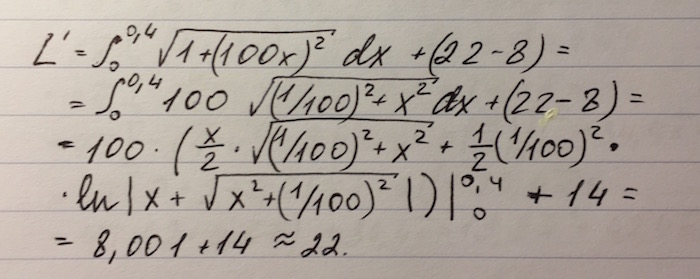 L' = ∫₀^0,4 √(1+(100x)²) dx + (22-8) =
= ∫₀^0,4 100 √((1/100)²+x²) dx + (22-8) =
= 100 · (x/2 · √((1/100)²+x²) + 1/2 (1/100)² ·
· ln|x + √(x²+(1/100)²)|)|₀^0,4 + 14 =
= 8,001+14 ≈ 22.